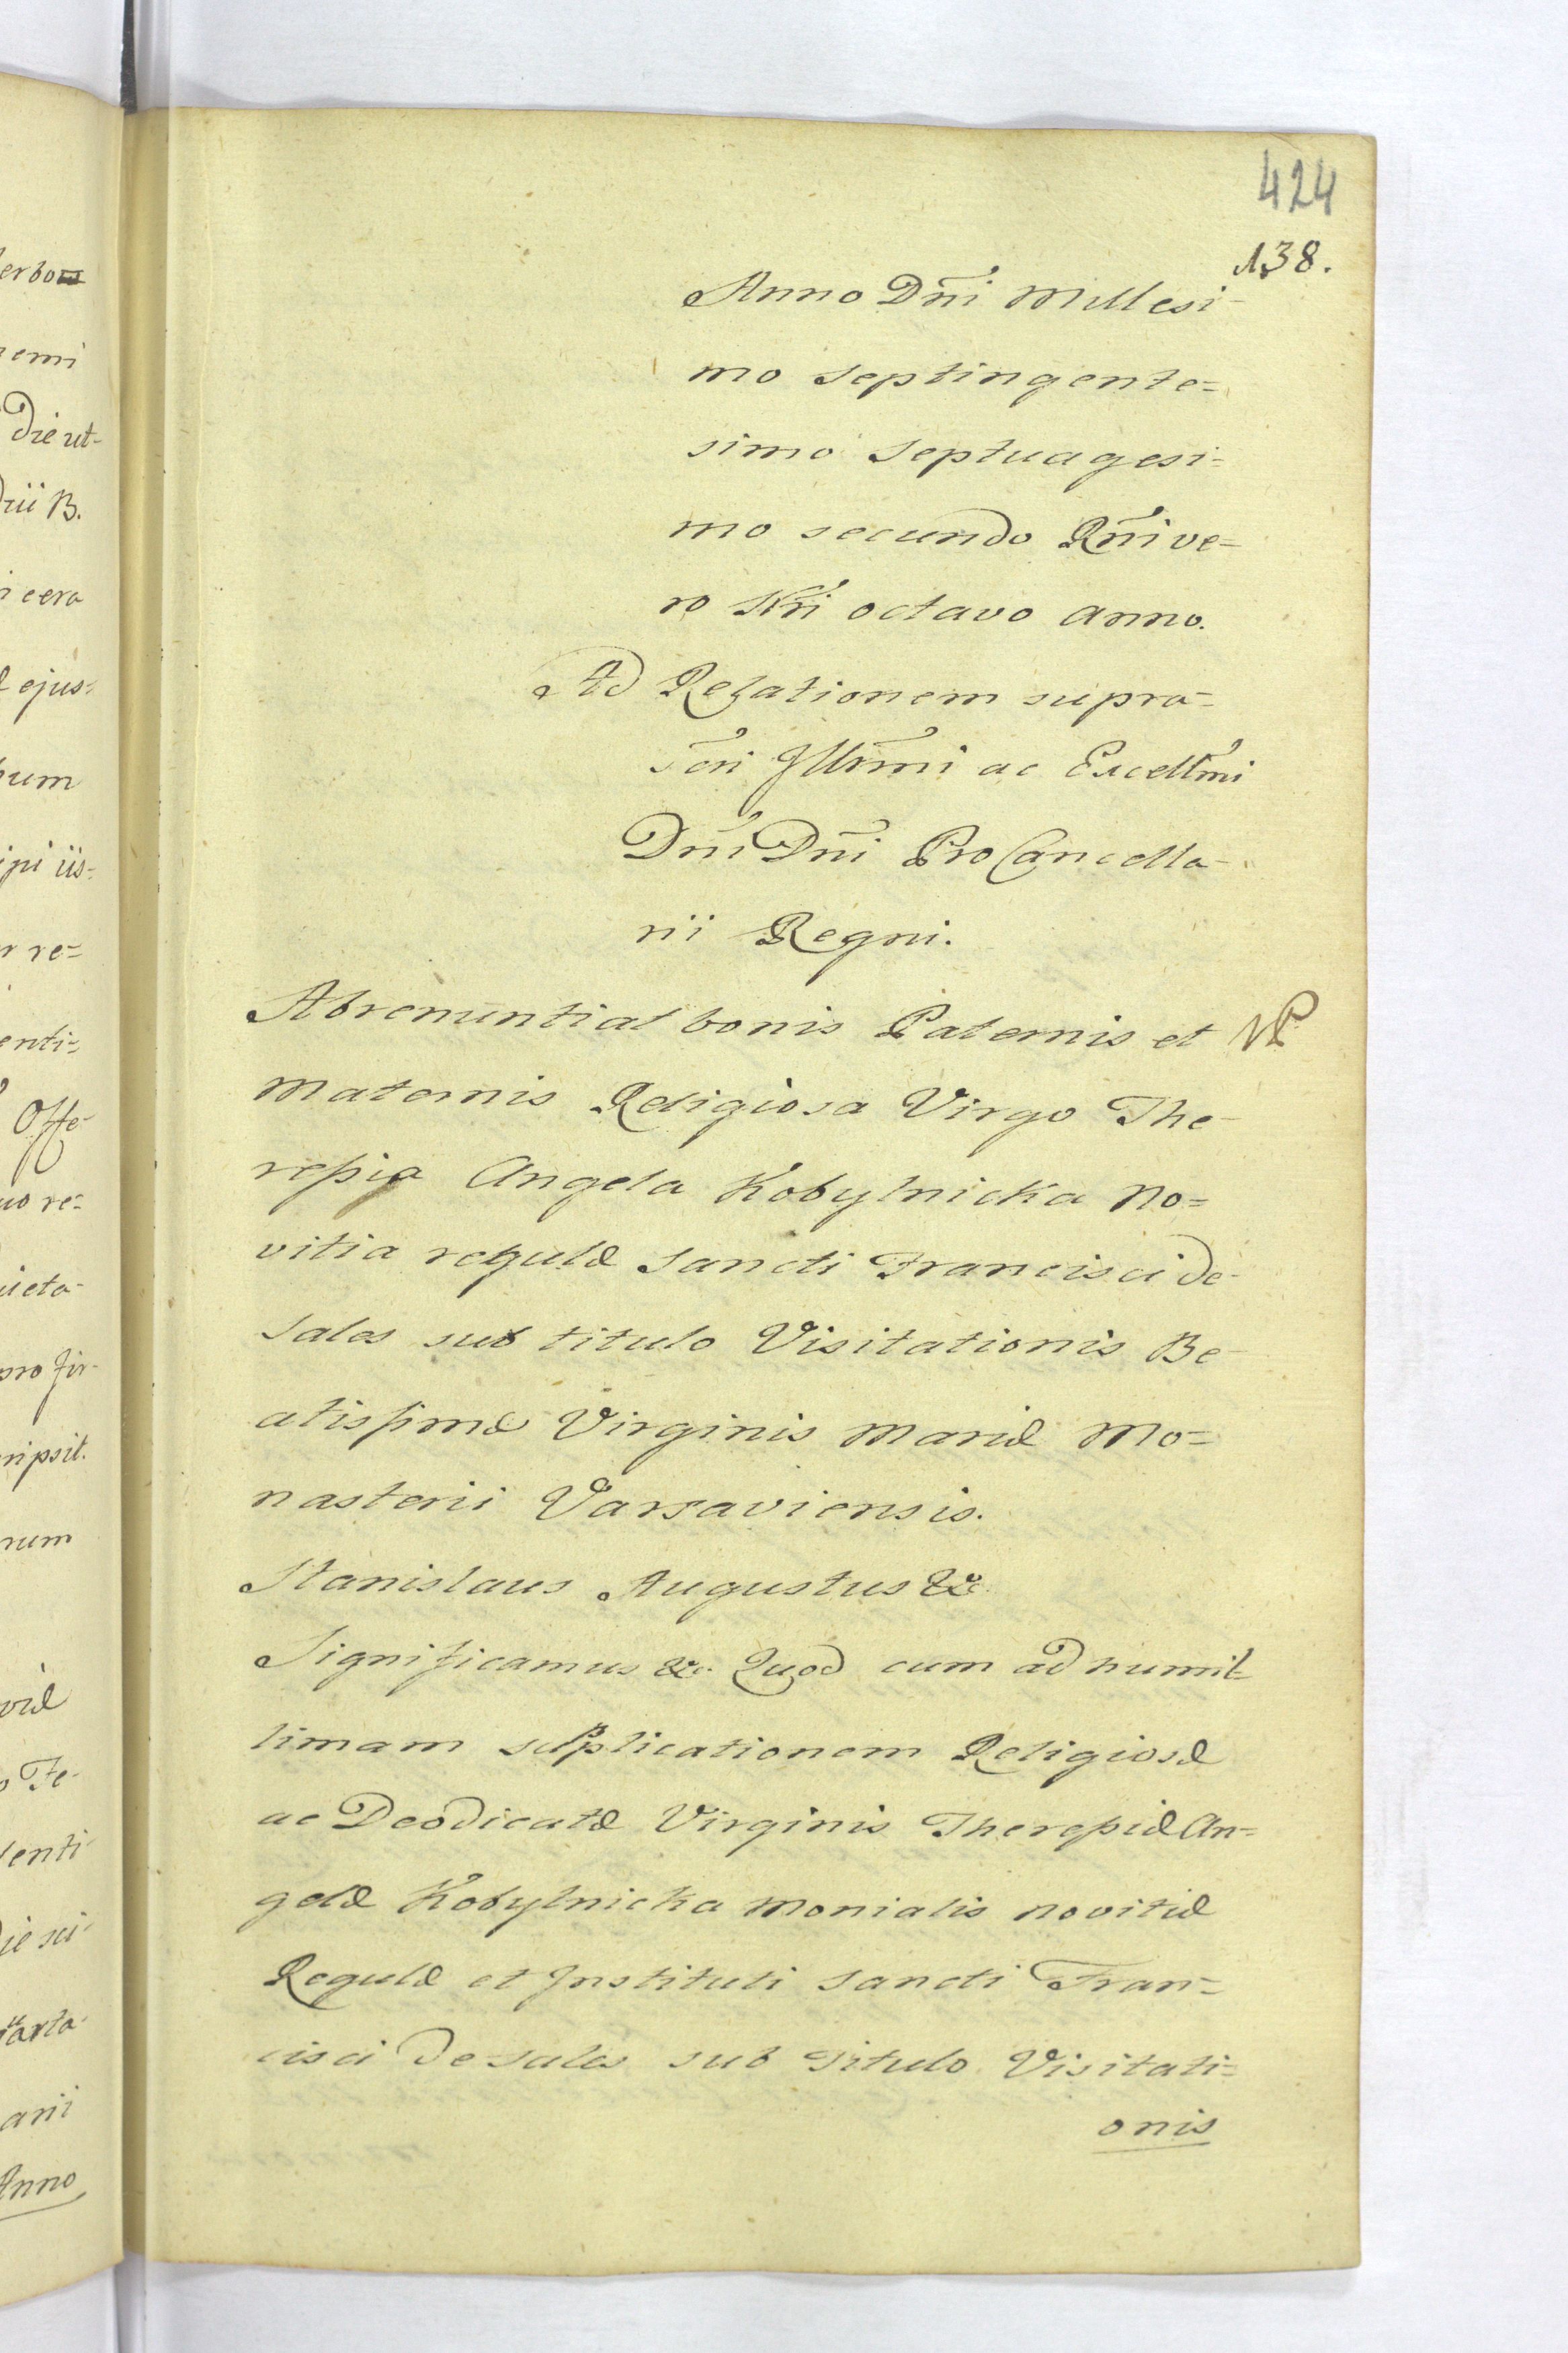 424
138.
Anno Dñi Millesi-
mo septingente=
simo septuagesi=
mo secundo Rñi ve=
ro Nri octavo anno.
Ad Relationem supra=
scri Illrmi ac Excellmi
Dni Dñi Pro Cancella-
rii Regni.
Abrenuntiat bonis Paternis et
Maternis Religiosa Virgo The-
reßia Angela Kobylnicka No=
vitia regulæ Sancti Francisci de
Sales sub titulo Visitationis Be-
atissimæ Virginis Mariæ Mo=
nasterii Varsaviensis.
Stanislaus Augustus &c.
Significamus &c. Quod cum ad humil=
limam supplicationem Religiosæ
ac Deodicatæ Virginis Thereßiæ An=
gelæ Kobylnicka Monialis novitiæ
Regulæ et Instituti Sancti Fran=
cisci de Sales sub titulo Visitati=
onis
erbo
emi
Die ut-
rii B.
cera
ejus=
um
iis=
re=
enti=
Offe-
uo re=
ueta-
pro fir-
ripsit.
rum
viæ
Fe-
enti-
ie sci-
arta-
arii
Anno